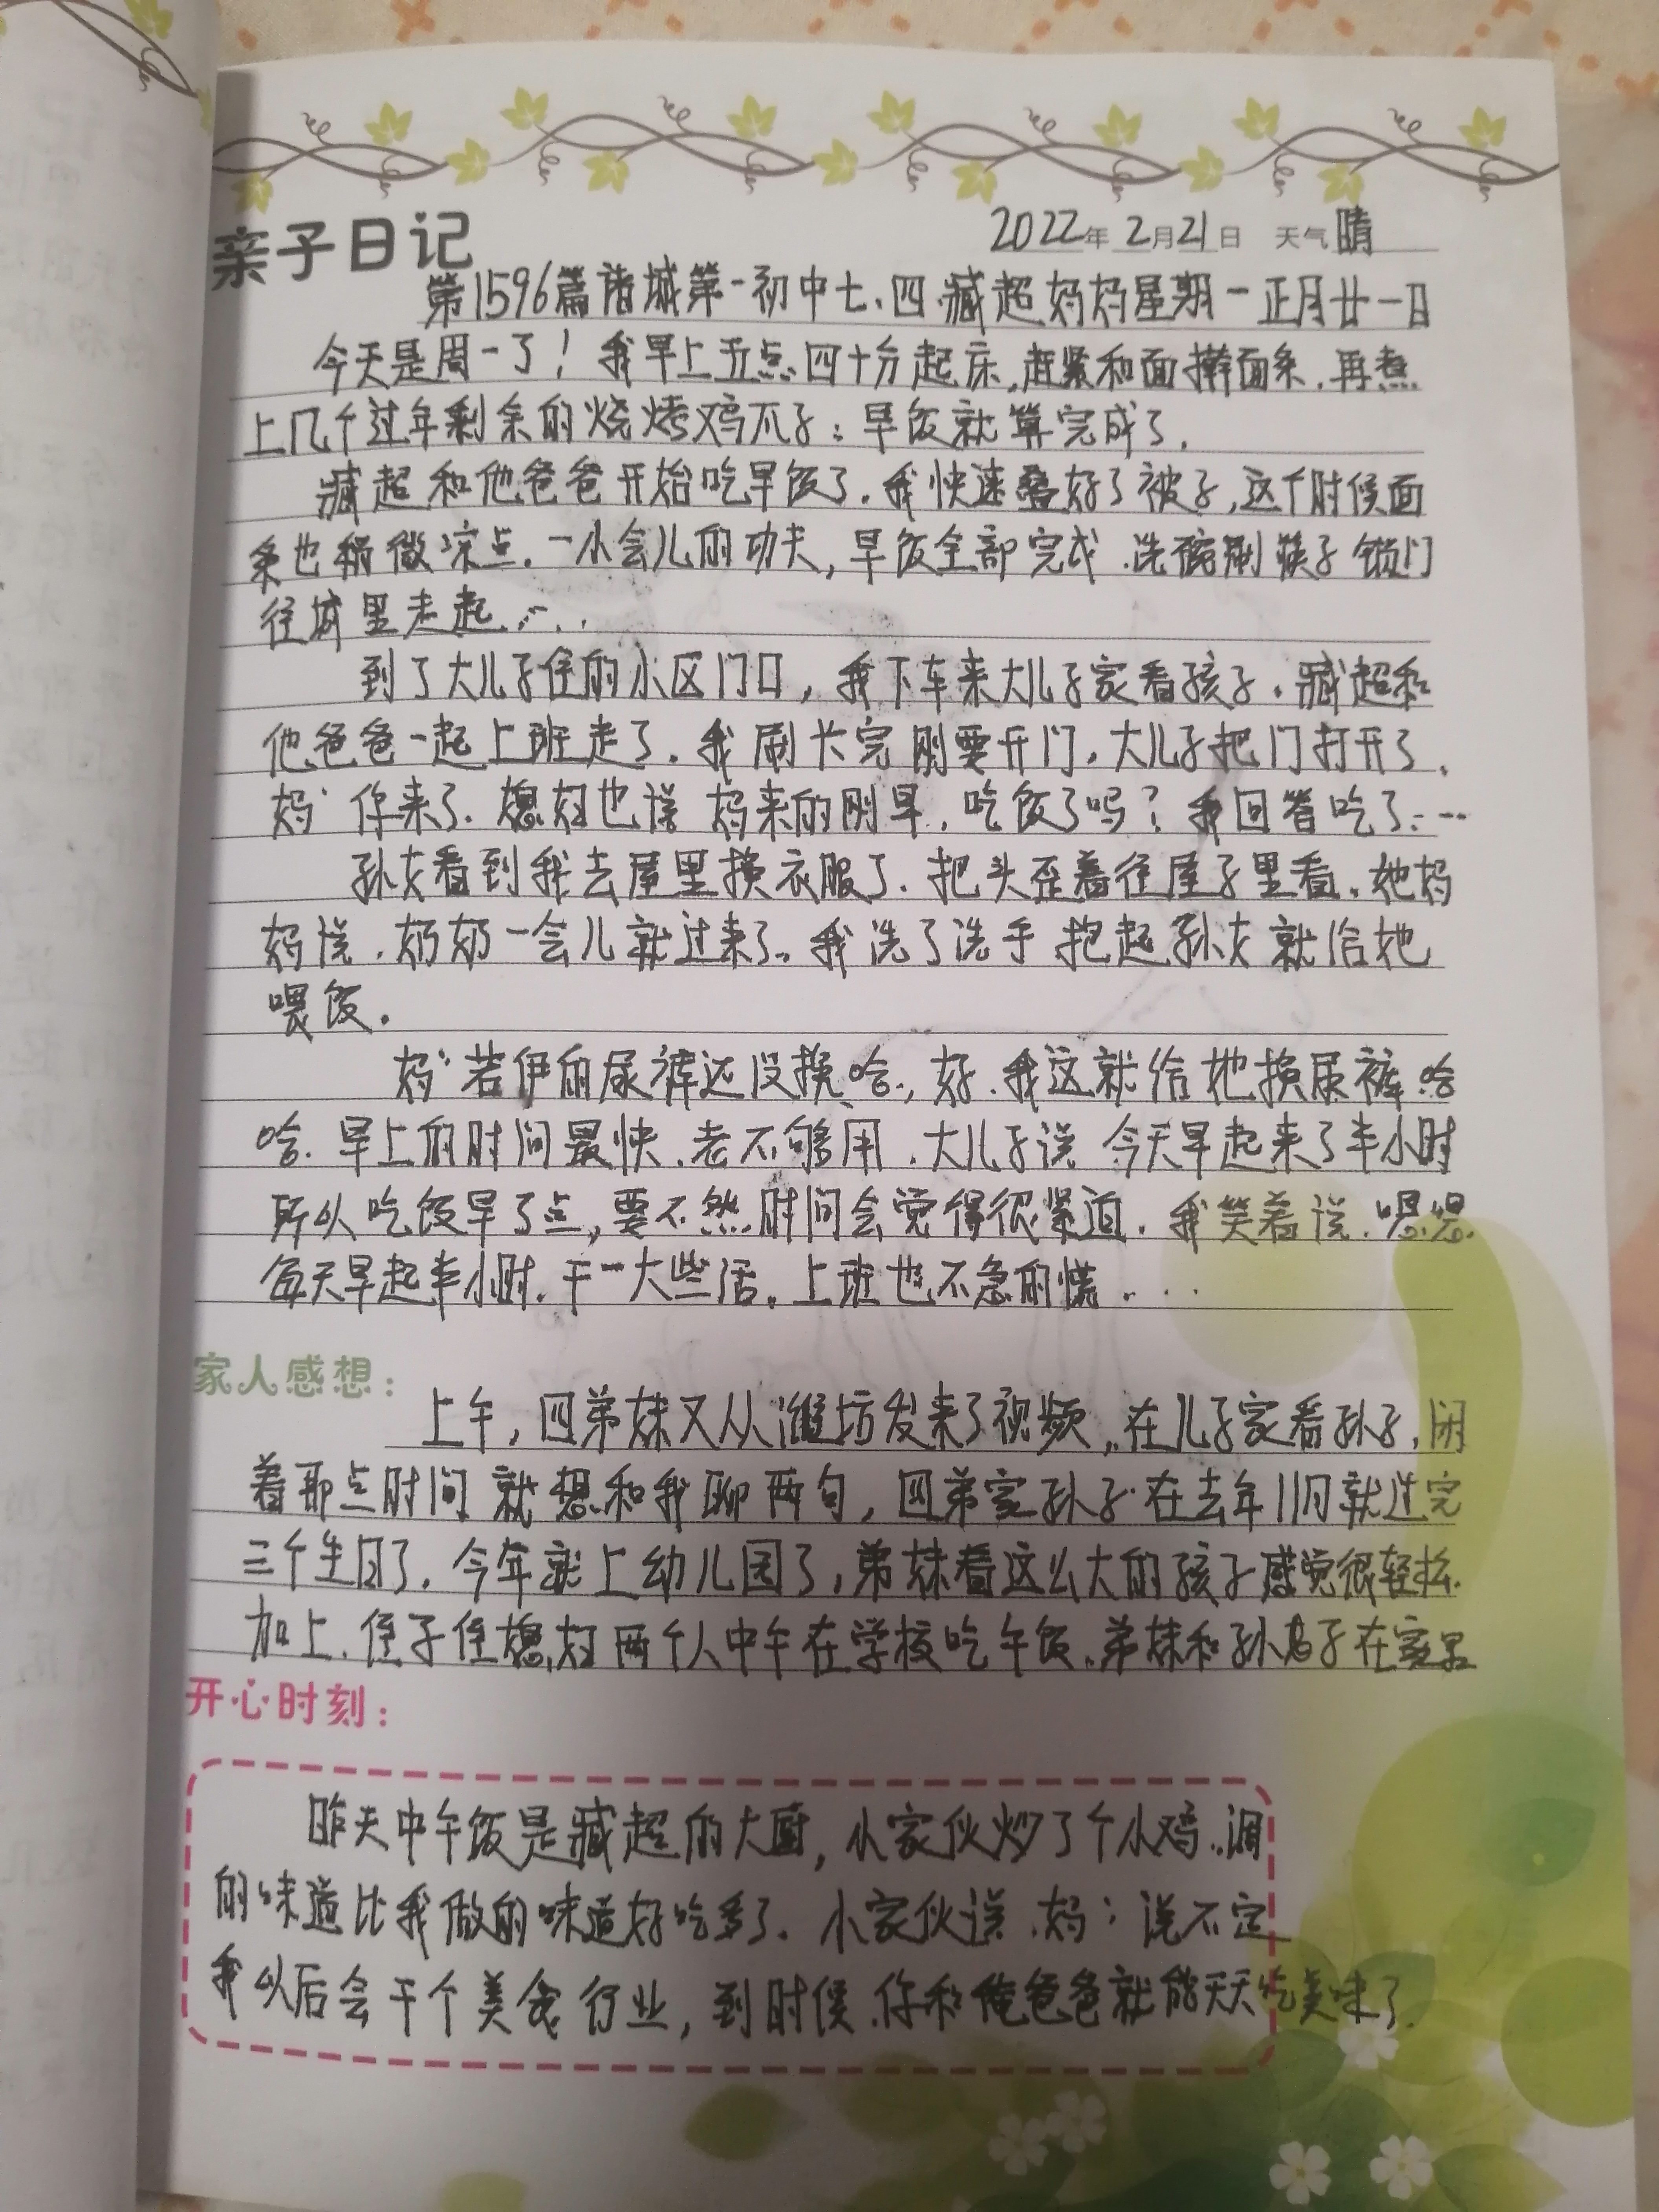 亲子日记
2022年2月21日 天气 晴
第1596篇诸城第一初中七、四、臧超妈妈星期一正月廿一日
今天是周一了！我早上五点四十分起床，赶紧和面擀面条，再煮
上几个过年剩余的烧烤鸡爪子；早饭就算完成了。
臧超和他爸爸开始吃早饭了。我快速叠好了被子，这个时候面
条也稍微凉点。一小会儿的功夫，早饭全部完成，洗碗刷筷子锁门
往城里走起……
到了大儿子住的小区门口，我下车来大儿子家看孩子。臧超和
他爸爸一起上班走了。我刷卡完刚要开门，大儿子把门打开了，
妈：你来了。媳妇也说妈来的刚早，吃饭了吗？我回答吃了……
孙女看到我去屋里换衣服了，把头歪着往屋子里看。她妈
妈说，奶奶一会儿就过来了。我洗了洗手抱起孙女就给她
喂饭。
妈：若伊的尿裤还没换哈，好，我这就给她换尿裤哈
哈。早上的时间最快，老不够用，大儿子说今天早起来了半小时
所以吃饭早了点，要不然时间会觉得很紧迫。我笑着说，嗯嗯
每天早起半小时，干一大些活。上班也不急的慌……
家人感想：
上午，四弟妹又从潍坊发来了视频，在儿子家看孙子，闲
着那点时间就想和我聊两句，四弟家孙子在去年11月就过完
三个生日了，今年就上幼儿园了，弟妹看这么大的孩子感觉很轻松，
加上，侄子侄媳妇两个人中午在学校吃午饭，弟妹和孙子在家里
开心时刻：
昨天中午饭是臧超的大厨，小家伙炒了个小鸡，调
的味道比我做的味道好吃多了。小家伙说，妈：说不定
我以后会干个美食行业，到时候，你和俺爸爸就能天天吃美味了。